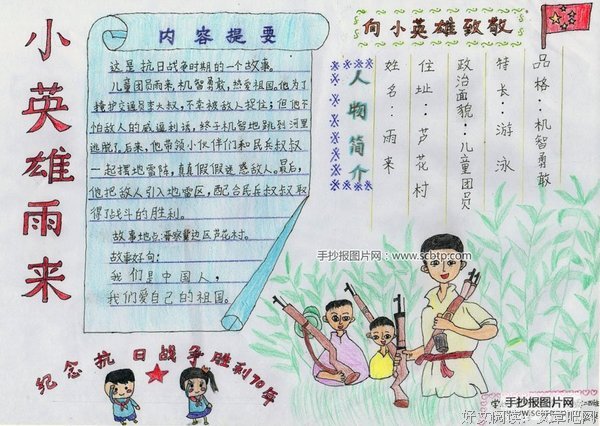 小英雄雨来
内容提要
这是抗日战争时期的一个故事。
儿童团员雨来,机智勇敢,热爱祖国。他为了
掩护交通员李大叔,不幸被敌人捉住;但他不
怕敌人的威逼利诱,终于机智地跳到河里
逃脱了。后来,他带领小伙伴们和民兵叔叔
一起摆地雷阵,真真假假迷惑敌人。最后,
他把敌人引入地雷区,配合民兵叔叔取
得了战斗的胜利。
故事地点:晋察冀边区芦花村。
故事好句:
我们是中国人,
我们爱自己的祖国。
向小英雄致敬
人物简介
姓名:雨来
住址:芦花村
政治面貌:儿童团员
特长:游泳
品格:机智勇敢
手抄报图片网:www.scbtp.com
纪念抗日战争胜利70年
手抄报图片网
好文阅读:文章吧网